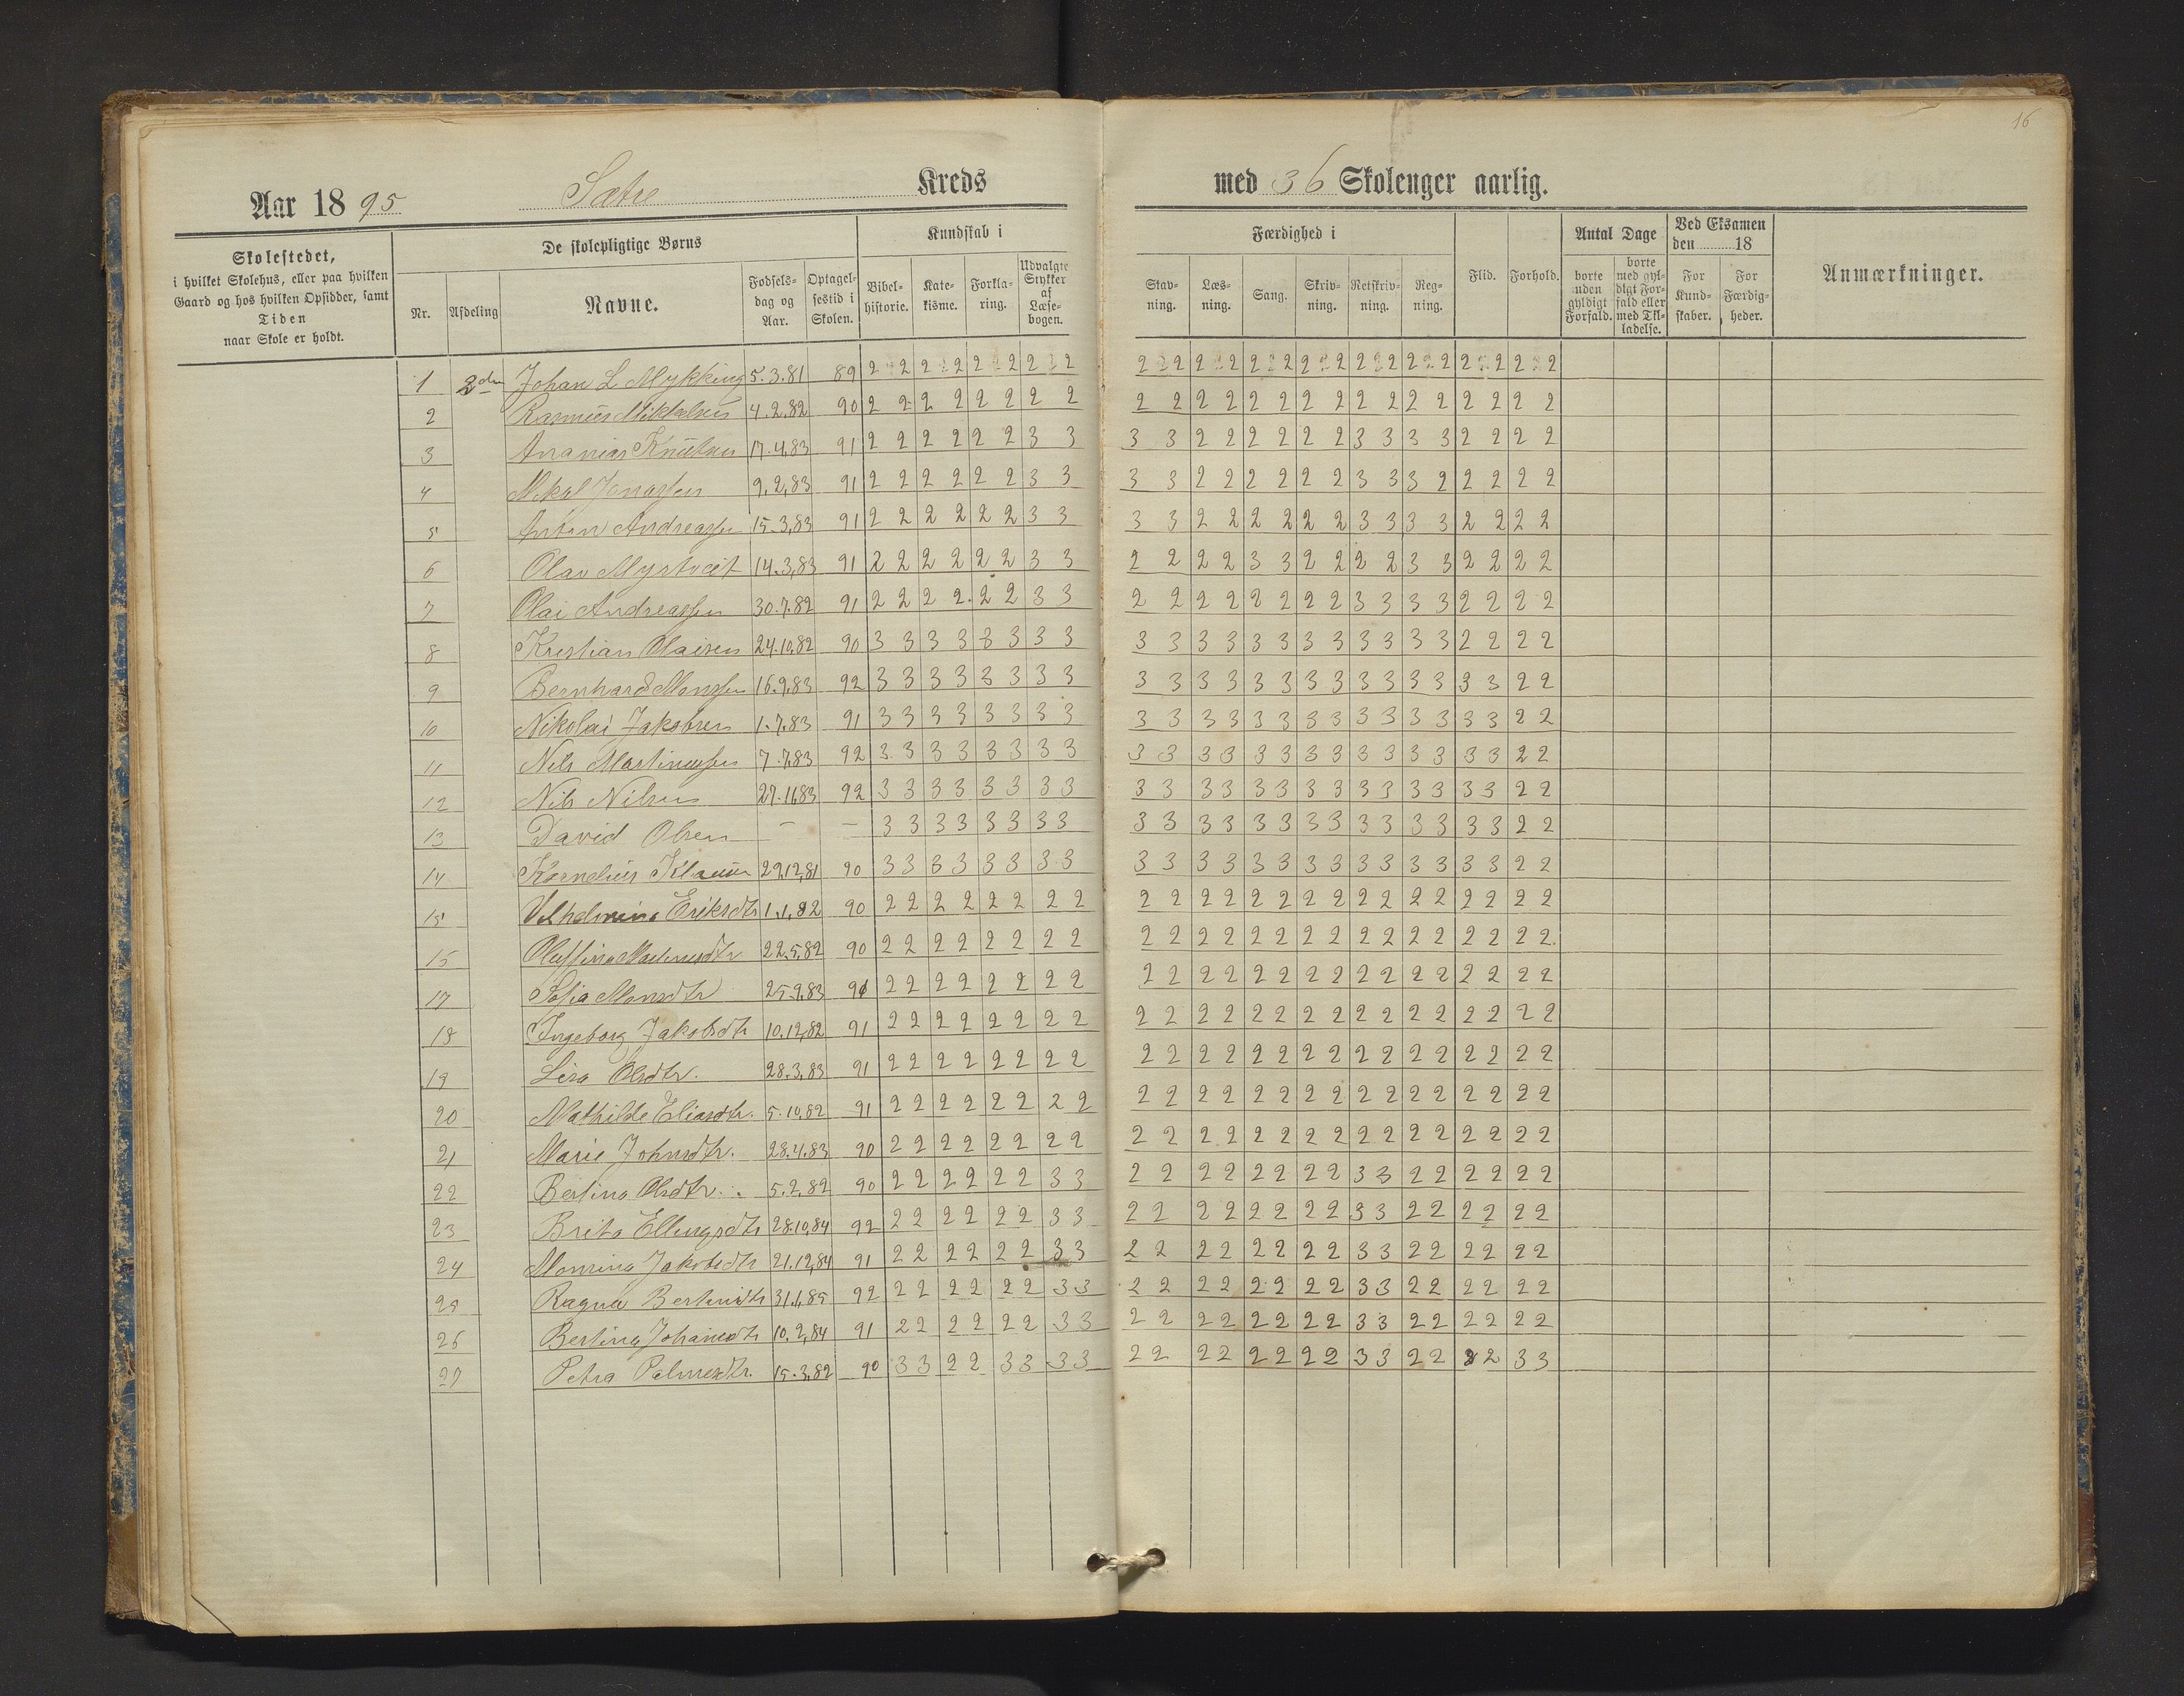 16
Aar 1895 Sætre Kreds med 36 Skolenger aarlig.
Skolestedet,
i hvilket Skolehus, eller paa hvilken
Gaard og hos hvilken Opsidder, samt
Tiden
naar Skole er holdt.
De skolepligtige Børns
Nr. Afdeling Navne. Fødsels-dag og Aar. Optagel-sestid i Skolen.
Kundskab i
Bibel-historie. Kate-kisme. Forkla-ring. Udvalgte Stykker af Læse-bogen.
Færdighed i
Stav-ning. Læs-ning. Sang. Skriv-ning. Retskriv-ning. Reg-ning.
Flid. Forhold.
Antal Dage
borte uden gyldigt Forfald. borte med gyl-digt For-fald eller med Til-ladelse.
Ved Eksamen den 18
For Kund-skaber. For Færdig-heder.
Anmærkninger.
1 2den Johan L Mykking 5.3.81 89 2 2 2 2 2 2 2 2 2 2 2 2 2 2 2 2 2 2 2 2 2 2 2 2
2 Rasmus Mikkelsen 4.2.82 90 2 2 2 2 2 2 2 2 2 2 2 2 2 2 2 2 2 2 2 2 2 2 2 2
3 Ananias Knutsen 17.4.83 91 2 2 2 2 2 2 3 3 3 3 2 2 2 2 2 2 3 3 3 3 2 2 2 2
4 Mikal Jonassen 9.2.83 91 2 2 2 2 2 2 3 3 3 3 2 2 2 2 2 2 3 3 3 2 2 2 2 2
5 Anton Andreassen 15.3.83 91 2 2 2 2 2 2 3 3 3 3 2 2 2 2 2 2 3 3 3 3 2 2 2 2
6 Olav Myrtveit 14.3.83 91 2 2 2 2 2 2 3 3 2 2 2 2 3 3 2 2 2 2 3 3 2 2 2 2
7 Olai Andreassen 30.7.82 91 2 2 2 2 2 2 3 3 2 2 2 2 2 2 2 2 3 3 3 3 2 2 2 2
8 Kristian Olaisen 24.10.82 90 3 3 3 3 3 3 3 3 3 3 3 3 3 3 3 3 3 3 3 3 2 2 2 2
9 Bernhard Monsen 16.9.83 92 3 3 3 3 3 3 3 3 3 3 3 3 3 3 3 3 3 3 3 3 3 3 2 2
10 Nikolai Jakobsen 1.7.83 91 3 3 3 3 3 3 3 3 3 3 3 3 3 3 3 3 3 3 3 3 3 3 2 2
11 Nils Martinussen 7.7.83 92 3 3 3 3 3 3 3 3 3 3 3 3 3 3 3 3 3 3 3 3 3 3 2 2
12 Nils Nilsen 27.11.83 92 3 3 3 3 3 3 3 3 3 3 3 3 3 3 3 3 3 3 3 3 3 3 2 2
13 David Olsen — — 3 3 3 3 3 3 3 3 3 3 3 3 3 3 3 3 3 3 3 3 3 3 2 2
14 Kornelius 29.12.81 90 3 3 3 3 3 3 3 3 3 3 3 3 3 3 3 3 3 3 3 3 3 3 2 2
15 Vilhelmina Eriksdtr 1.1.82 90 2 2 2 2 2 2 2 2 2 2 2 2 2 2 2 2 2 2 2 2 2 2 2 2
16 22.5.82 90 2 2 2 2 2 2 2 2 2 2 2 2 2 2 2 2 2 2 2 2 2 2 2 2
17 Sofia Monsdtr 25.9.83 91 2 2 2 2 2 2 2 2 2 2 2 2 2 2 2 2 2 2 2 2 2 2 2 2
18 Ingeborg Jakobsdtr 10.12.82 91 2 2 2 2 2 2 2 2 2 2 2 2 2 2 2 2 2 2 2 2 2 2 2 2
19 Lisa Olsdtr. 28.3.83 91 2 2 2 2 2 2 2 2 2 2 2 2 2 2 2 2 2 2 2 2 2 2 2 2
20 Mathilde Eliasdtr. 5.10.82 91 2 2 2 2 2 2 2 2 2 2 2 2 2 2 2 2 2 2 2 2 2 2 2 2
21 Marie Johnsdtr. 28.4.83 90 2 2 2 2 2 2 2 2 2 2 2 2 2 2 2 2 2 2 2 2 2 2 2 2
22 Bertina Olsdtr. 5.2.82 90 2 2 2 2 2 2 3 3 2 2 2 2 2 2 2 2 3 3 2 2 2 2 2 2
23 Brita Ellingsdtr 28.10.84 92 2 2 2 2 2 2 3 3 2 2 2 2 2 2 2 2 3 3 2 2 2 2 2 2
24 Monsina Jakobsdtr 21.12.84 91 2 2 2 2 2 2 3 3 2 2 2 2 2 2 2 2 3 3 2 2 2 2 2 2
25 Ragna 31.1.85 92 2 2 2 2 2 2 3 3 2 2 2 2 2 2 2 2 3 3 2 2 2 2 2 2
26 Bertina Johannesdtr 10.2.84 91 2 2 2 2 2 2 3 3 2 2 2 2 2 2 2 2 3 3 2 2 2 2 2 2
27 Petra 15.3.82 90 3 3 2 2 3 3 3 3 2 2 2 2 2 2 2 2 3 3 2 2 2 2 3 3